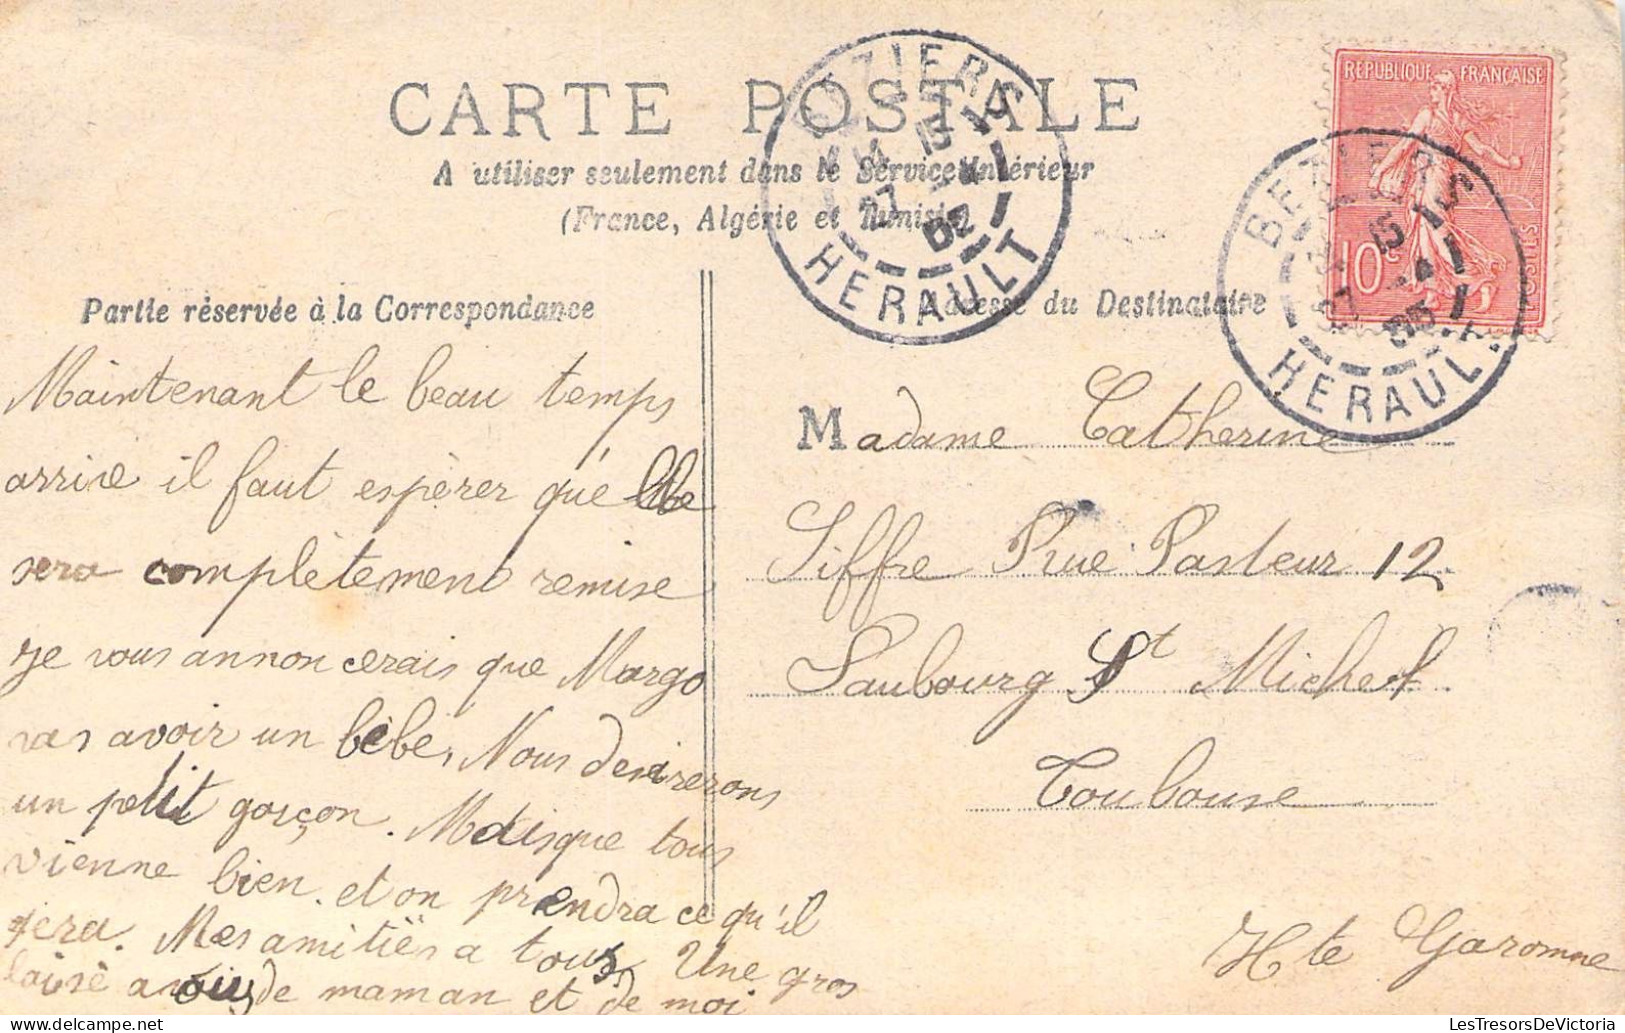 CARTE POSTALE
A utiliser seulement dans le Service Intérieur
(France, Algérie et Tunisie)
BEZIERS
15
27 -4
HERAULT
REPUBLIQUE FRANÇAISE
10c
POSTES
BEZIERS
15
27 -4
HERAULT
Partie réservée à la Correspondance
Maintenant le beau temps
arrive il faut espèrer que
sera complètement remise
je vous annoncerais que Margo
vas avoir un bébé, Nous desirerons
un petit garçon. Maisque tous
vienne bien. et on prendra ce qu'il
sera. Mes amitiës a tous, Une gros
de maman et de moi
Adresse du Destinataire
Madame Catherine
Siffre Rue Pasteur 12
Faubourg St Michel
Toulouse
Hte Garonne
LesTresorsDeVictoria